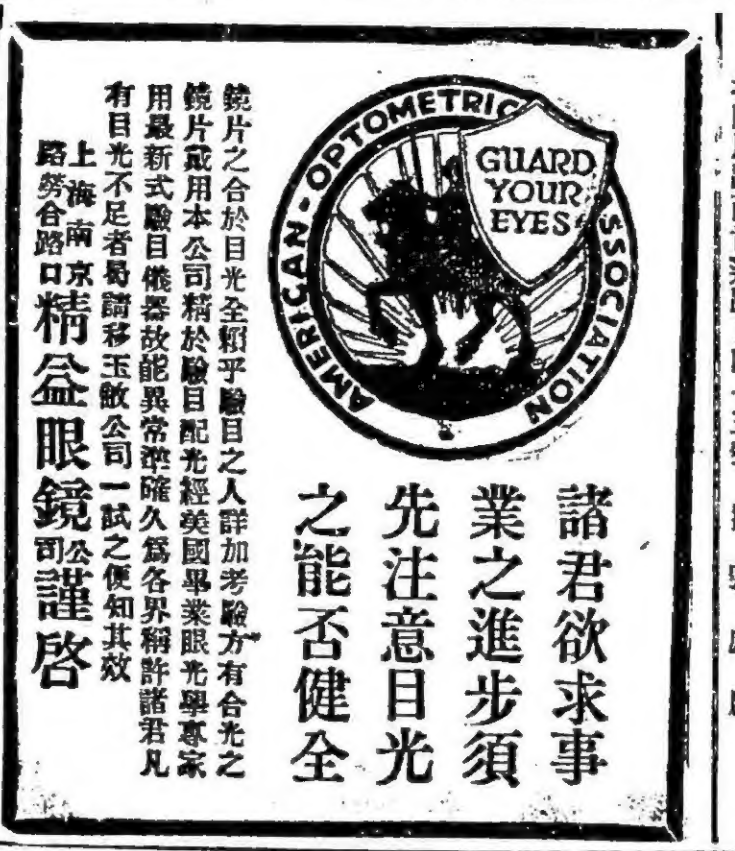 AMERICAN-OPTOMETRIC ASSOCIATION
GUARD
YOUR
EYES
諸君欲求事
業之進步須
先注意目光
之能否健全
鏡片之合於目光全賴乎驗目之人詳加考驗方有合光之
鏡片戴用本公司精於驗目配光經美國畢業眼光學專家
用最新式驗目儀器故能異常準確久爲各界稱許諸君凡
有目光不足者曷請移玉敝公司一試之便知其效
上海南京
路勞合路口
精益眼鏡公司謹啓